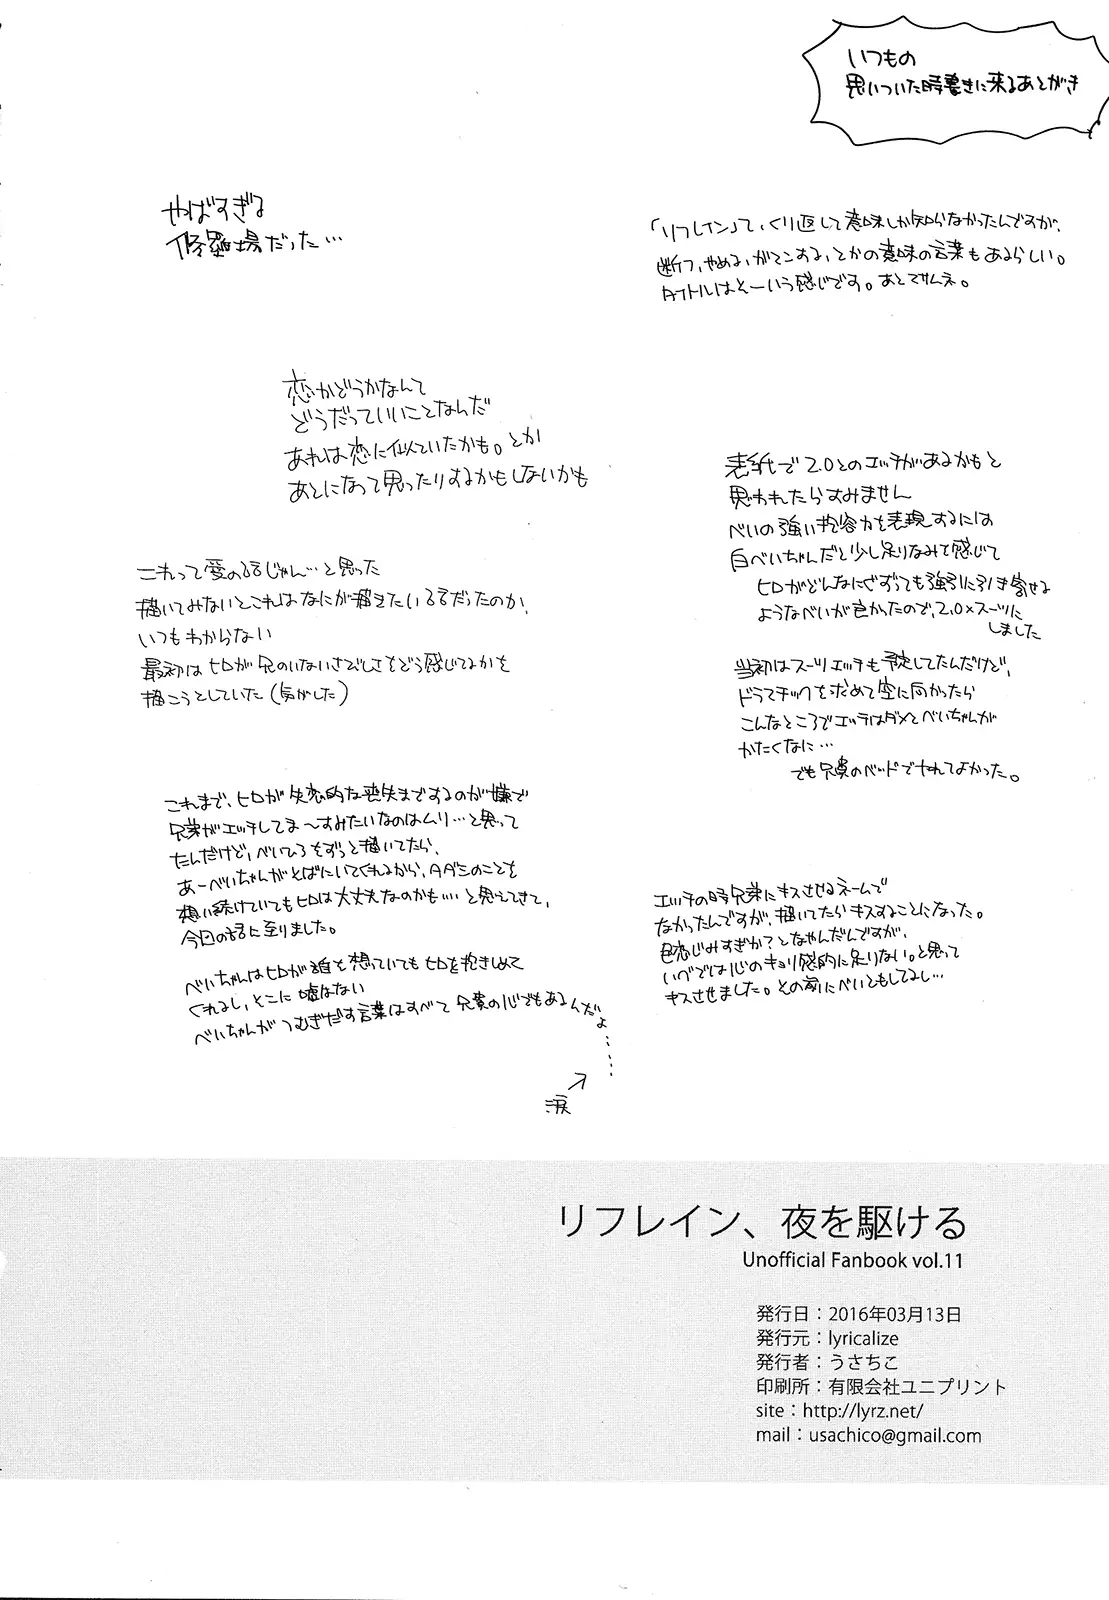 いつもの
思いついた時書きに来るあとがき
「リフレイン」て、くり返して意味しか知らなかったんですが、
断つ、やめる、ガマンする、とかの意味の言葉もあるらしい。
タイトルはそーいう感じです。あとでサムネ。
やばすぎる
修羅場だった…
恋かどうかなんて
どうだっていいことなんだ
あれは恋に似ていたかも。とか
あとになって思ったりするかもしないかも
表紙で2.0とのエッチがあるかもと
思われたらすみません
べいの強い抱容力を表現するには
白べいちゃんだと少し足りなみて感じて
ヒロがどんなにぐずっても強引に引き寄せる
ようなべいが良かったので、2.0×スーツに
しました
当初はスーツエッチも予定してたんだけど、
ドラマチックを求めて空に向かったら
こんなところでエッチはダメとべいちゃんが
かたくなに…
でも兄貴のベッドでヤれてよかった。
これって愛の話じゃん…と思った
描いてみないとこれはなにが描きたい話だったのか、
いつもわからない
最初はヒロが兄のいないさびしさをどう感じてるかを
描こうとしていた(気がした)
これまで、ヒロが失恋的な喪失までするのが嫌で
兄弟がエッチしてま〜すみたいなのはムリ…と思って
たんだけど、べいひろをずっと描いてたら、
あーべいちゃんがそばにいてくれるから、AダミのことをC
想い続けていてもヒロは大丈夫なのかも…と思えてきて、
今回の話に至りました。
べいちゃんはヒロが誰を想っていてもヒロを抱きしめて
くれるし、そこに嘘はない
べいちゃんがつむぎだす言葉はすべて兄貴の心でもあるんだよ……
涙
エッチの時兄弟にキスさせるネームで
なかったんですが、描いてたらキスすることになった。
色恋じみすぎか?となやんだんですが、
いくでは心のキョリ感的に足りない。と思って
キスさせました。その前にべいともしてるし…
リフレイン、夜を駆ける
Unofficial Fanbook vol.11
発行日：2016年03月13日
発行元：lyricalize
発行者：うさちこ
印刷所：有限会社ユニプリント
site：http://lyrz.net/
mail：usachico@gmail.com